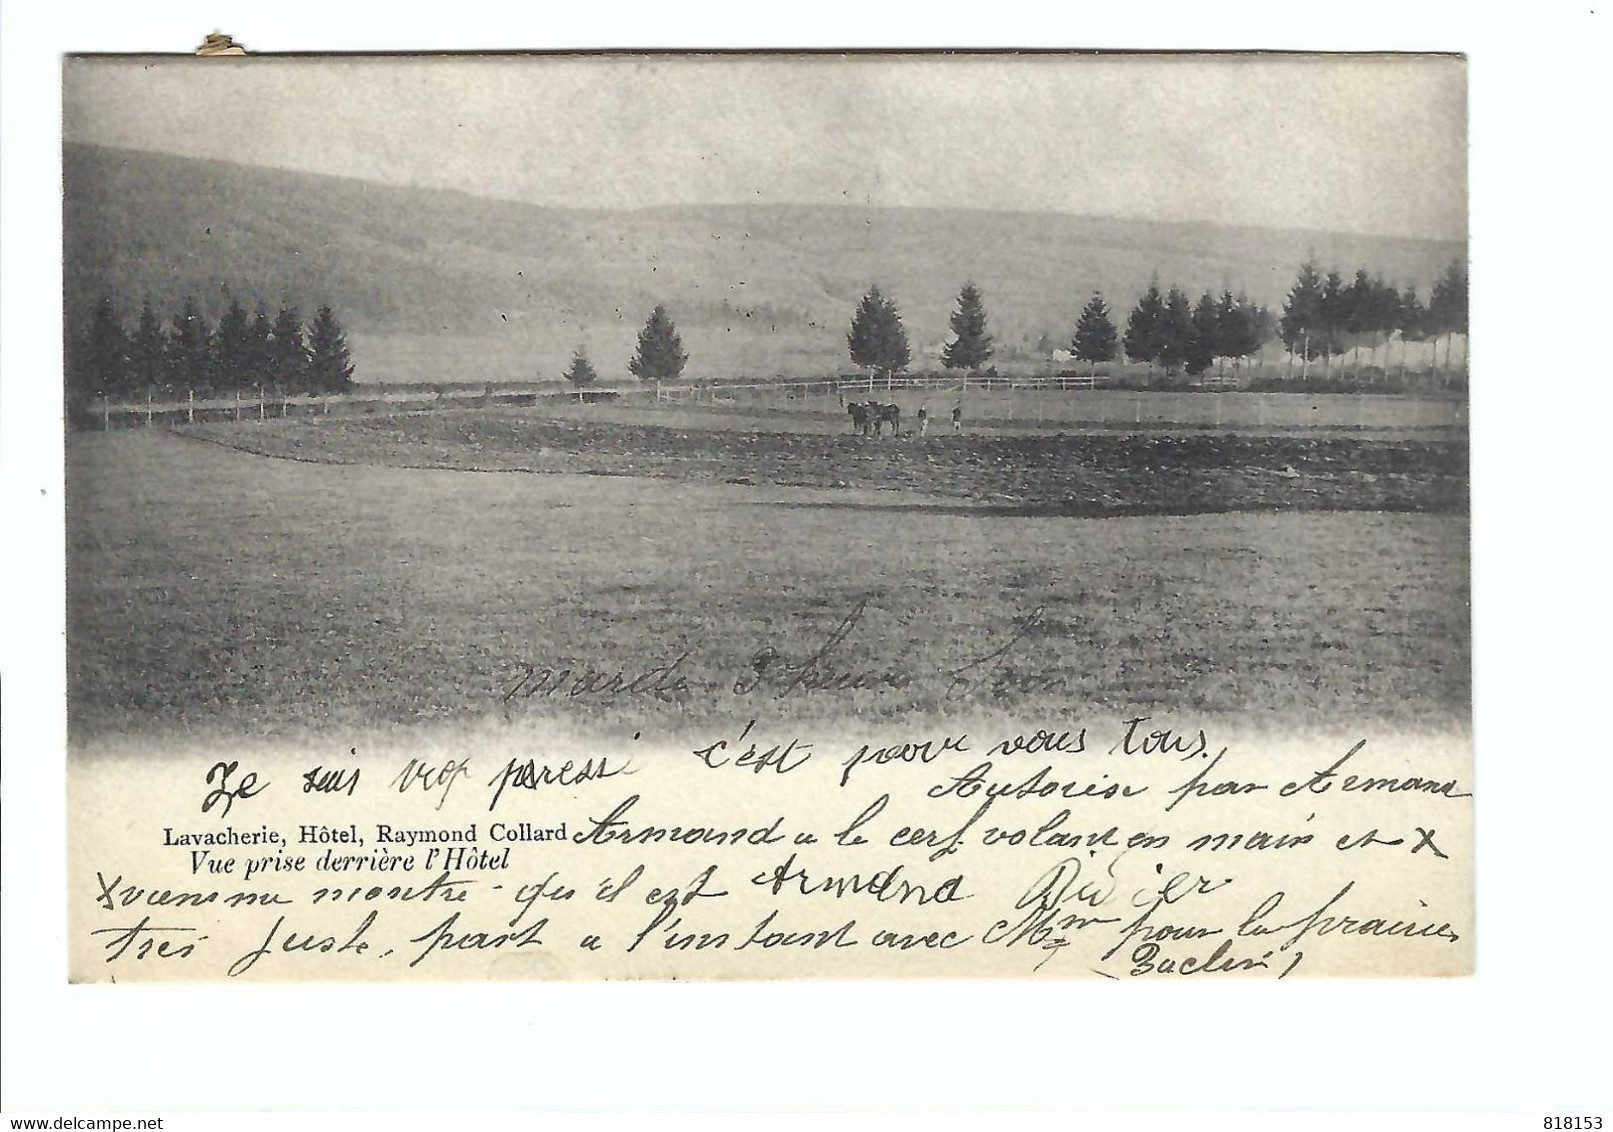 mardi 3 heure Soir
Je suis trop presse c'est pour vous tous.
Autorise par Armand
Lavacherie, Hôtel, Raymond Collard
Vue prise derrière l'Hôtel
Armand a le cerf volant en main et X
X me montre qu'il est Armand Didier
très juste, part a l'instant avec Mme pour la prairie
delcampe.net
818153